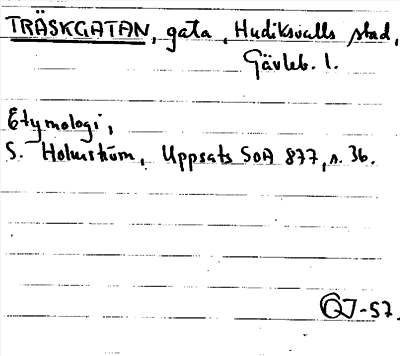 TRÄSKGATAN, gata, Hudiksvalls stad,
Gävleb. l.
Etymologi,
S. Holmström, Uppsats SOA 877, s. 36.
-57.